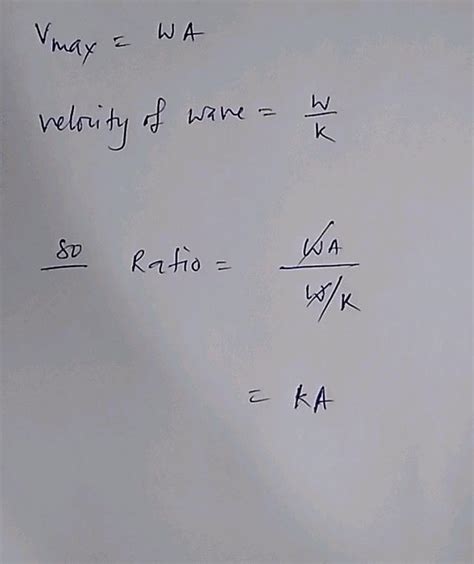 Vmax = WA
velocity of wave = W/K
so Ratio = WA / W/K
= KA